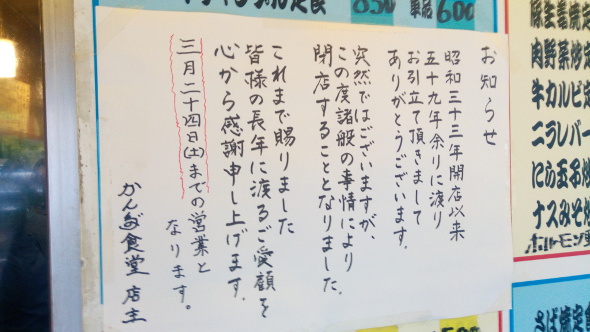 お知らせ
昭和三十三年開店以来
五十九年余りに渡り
お引立て頂きまして
ありがとうございます。
突然ではございますが、
この度諸般の事情により
閉店することとなりました。
これまで賜りました
皆様の長年に渡るご愛顧を
心から感謝申し上げます。
三月二十四日(土)までの営業と
なります。
かんだ食堂 店主
定食 850
単品 600
豚生姜焼定
肉野菜炒定
牛カルビ定
ニラレバー
にら玉子炒
ナスみそ炒
ホルモン
さば焼定食